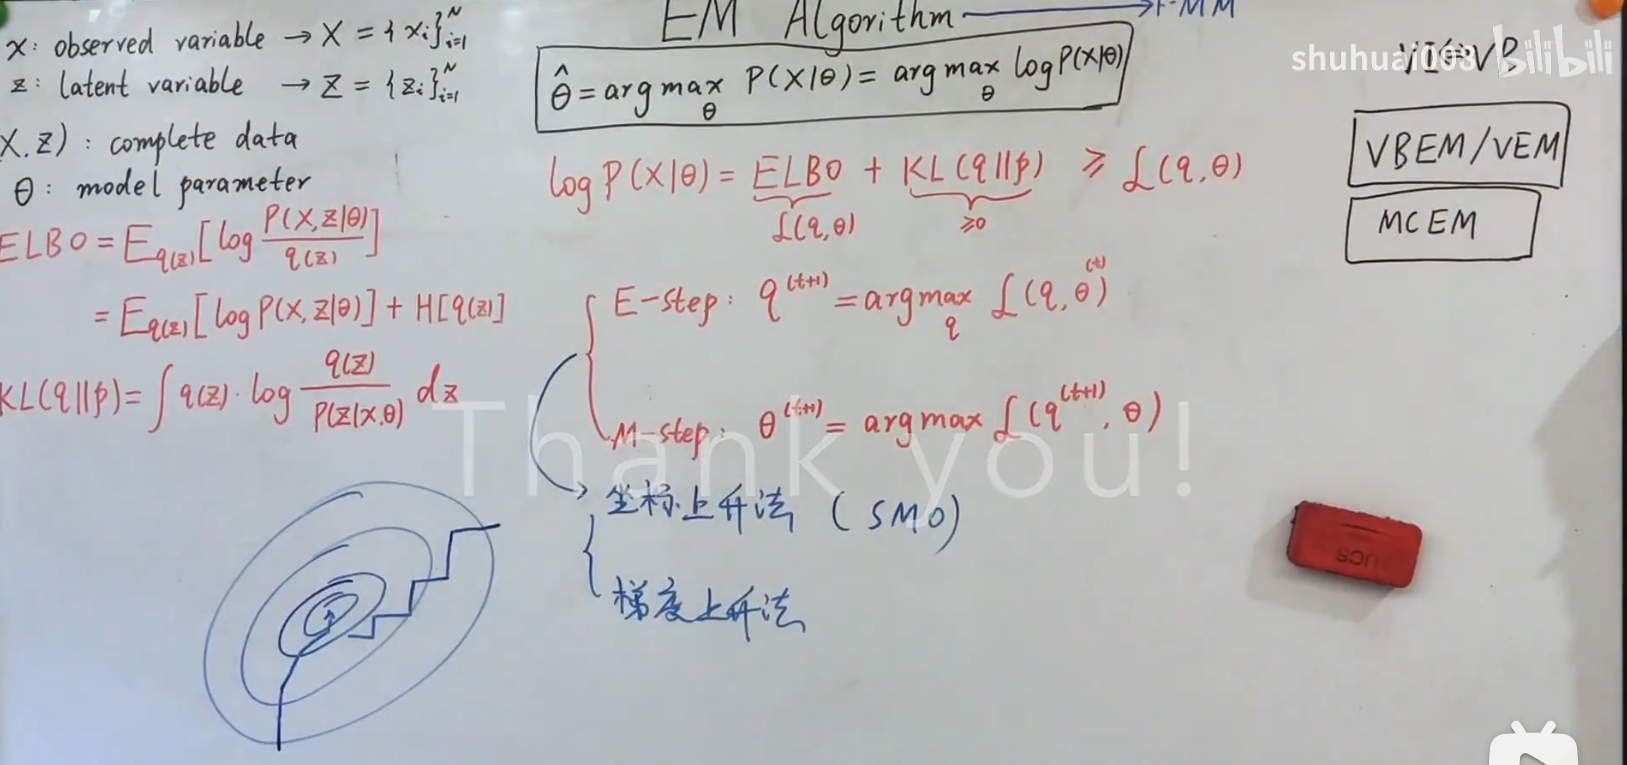 EM Algorithm
x: observed variable → X = {xᵢ}ᵢ₌₁ᴺ
z: latent variable → Z = {zᵢ}ᵢ₌₁ᴺ
X, Z) : complete data
θ: model parameter
ELBO = E_q(z) [log P(X,Z|θ) / q(z)]
= E_q(z) [log P(X,Z|θ)] + H[q(z)]
KL(q||p) = ∫ q(z) · log q(z) / P(z|x,θ) dz
θ̂ = arg max_θ P(X|θ) = arg max_θ log P(X|θ)
log P(X|θ) = ELBO + KL(q||p) ≥ ℒ(q,θ)
ℒ(q,θ) ≥0
E-step: q⁽ᵗ⁺¹⁾ = argmax_q ℒ(q, θ⁽ᵗ⁾)
M-step: θ⁽ᵗ⁺¹⁾ = arg max ℒ(q⁽ᵗ⁺¹⁾, θ)
坐标上升法 (SMO)
梯度上升法
Thank you!
shuhuai008 bilibili
VBEM/VEM
MCEM
UCS